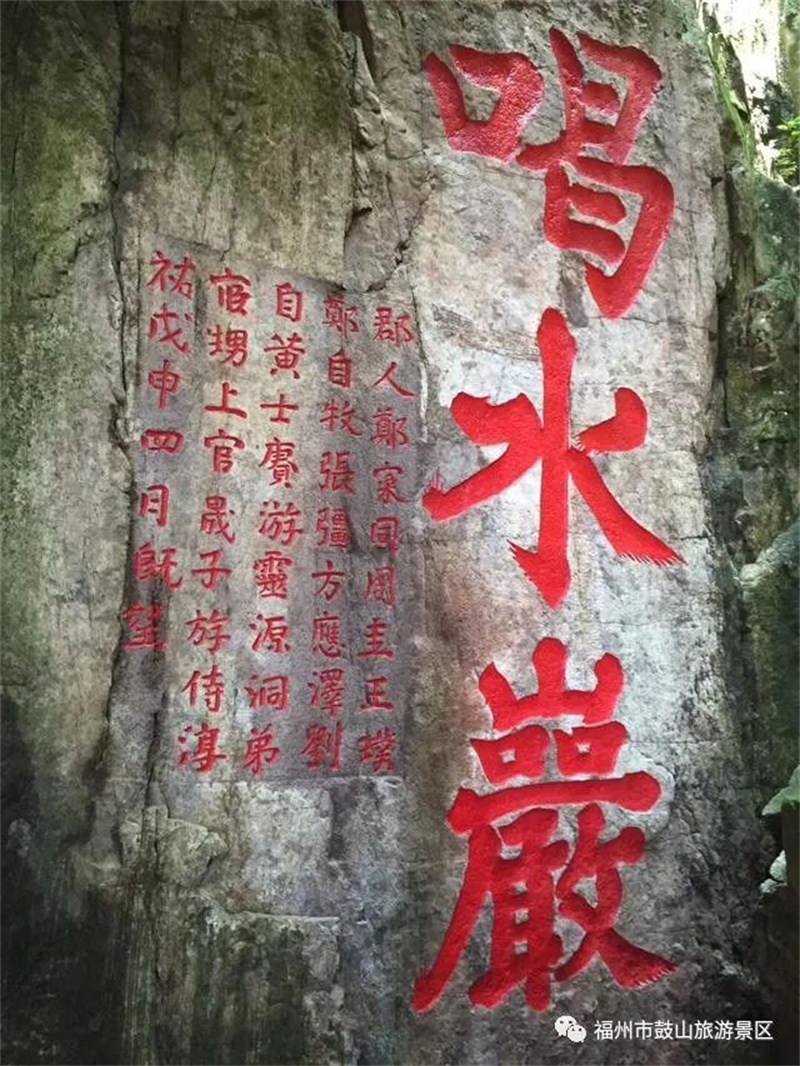 喝水巖
郡人鄭寀同周圭正璞
鄭自牧張疆方應澤劉
自黃士賚游靈源洞弟
甥上官晟子斿侍淳
祐戊申四月既望
福州市鼓山旅游景区